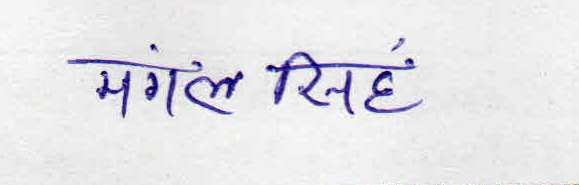 मंगल सिहं